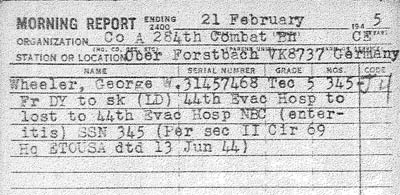 MORNING REPORT ENDING 2400 21 February 1945
ORGANIZATION Co A 284th Combat En CE
STATION OR LOCATION Ober Forstbach VK8737 Germany
NAME SERIAL NUMBER GRADE MOS. CODE
Wheeler, George W. 31457468 Tec 5 345-
Fr DY to sk (LD) 44th Evac Hosp to
lost to 44th Evac Hosp NBC (enter-
itis) SSN 345 (Per sec II Cir 69
Hq ETOUSA dtd 13 Jun 44)